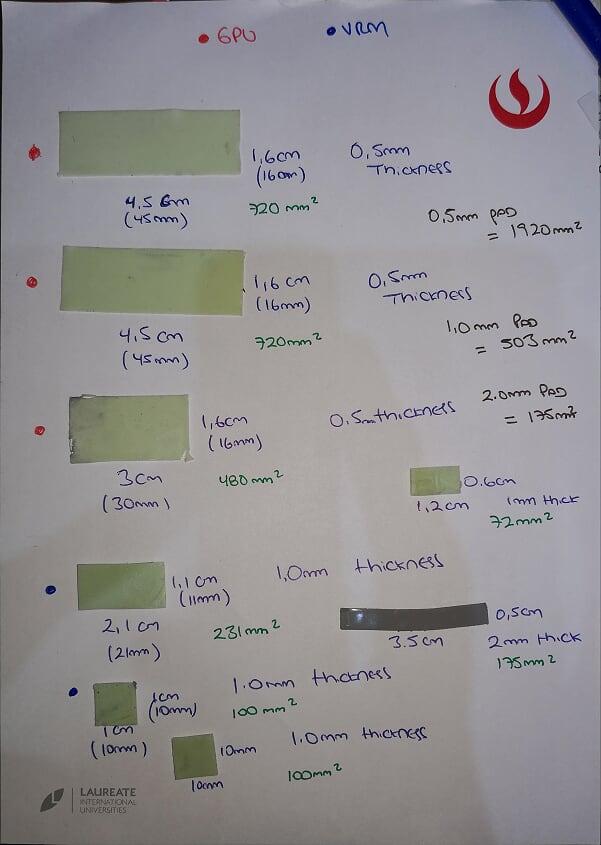 • GPU • VRM
1,6cm
(16mm)
0,5mm
Thickness
4,5 cm
(45mm)
720 mm²
0,5mm PAD
= 1920mm²
1,6 cm
(16mm)
0,5mm
Thickness
4,5 cm
(45mm)
720mm²
1,0mm PAD
= 503mm²
1,6cm
(16mm)
0,5mm thickness
2.0mm PAD
= 175mm²
3cm
(30mm)
480mm²
0.6cm
1,2cm 1mm thick
72mm²
1,1 cm
(11mm)
1,0mm thickness
2,1 cm
(21mm)
231mm²
0,5cm
3.5cm 2mm thick
175mm²
1cm
(10mm)
1.0mm thickness
100 mm²
1cm
(10mm)
10mm
1.0mm thickness
10mm
100mm²
LAUREATE
INTERNATIONAL
UNIVERSITIES